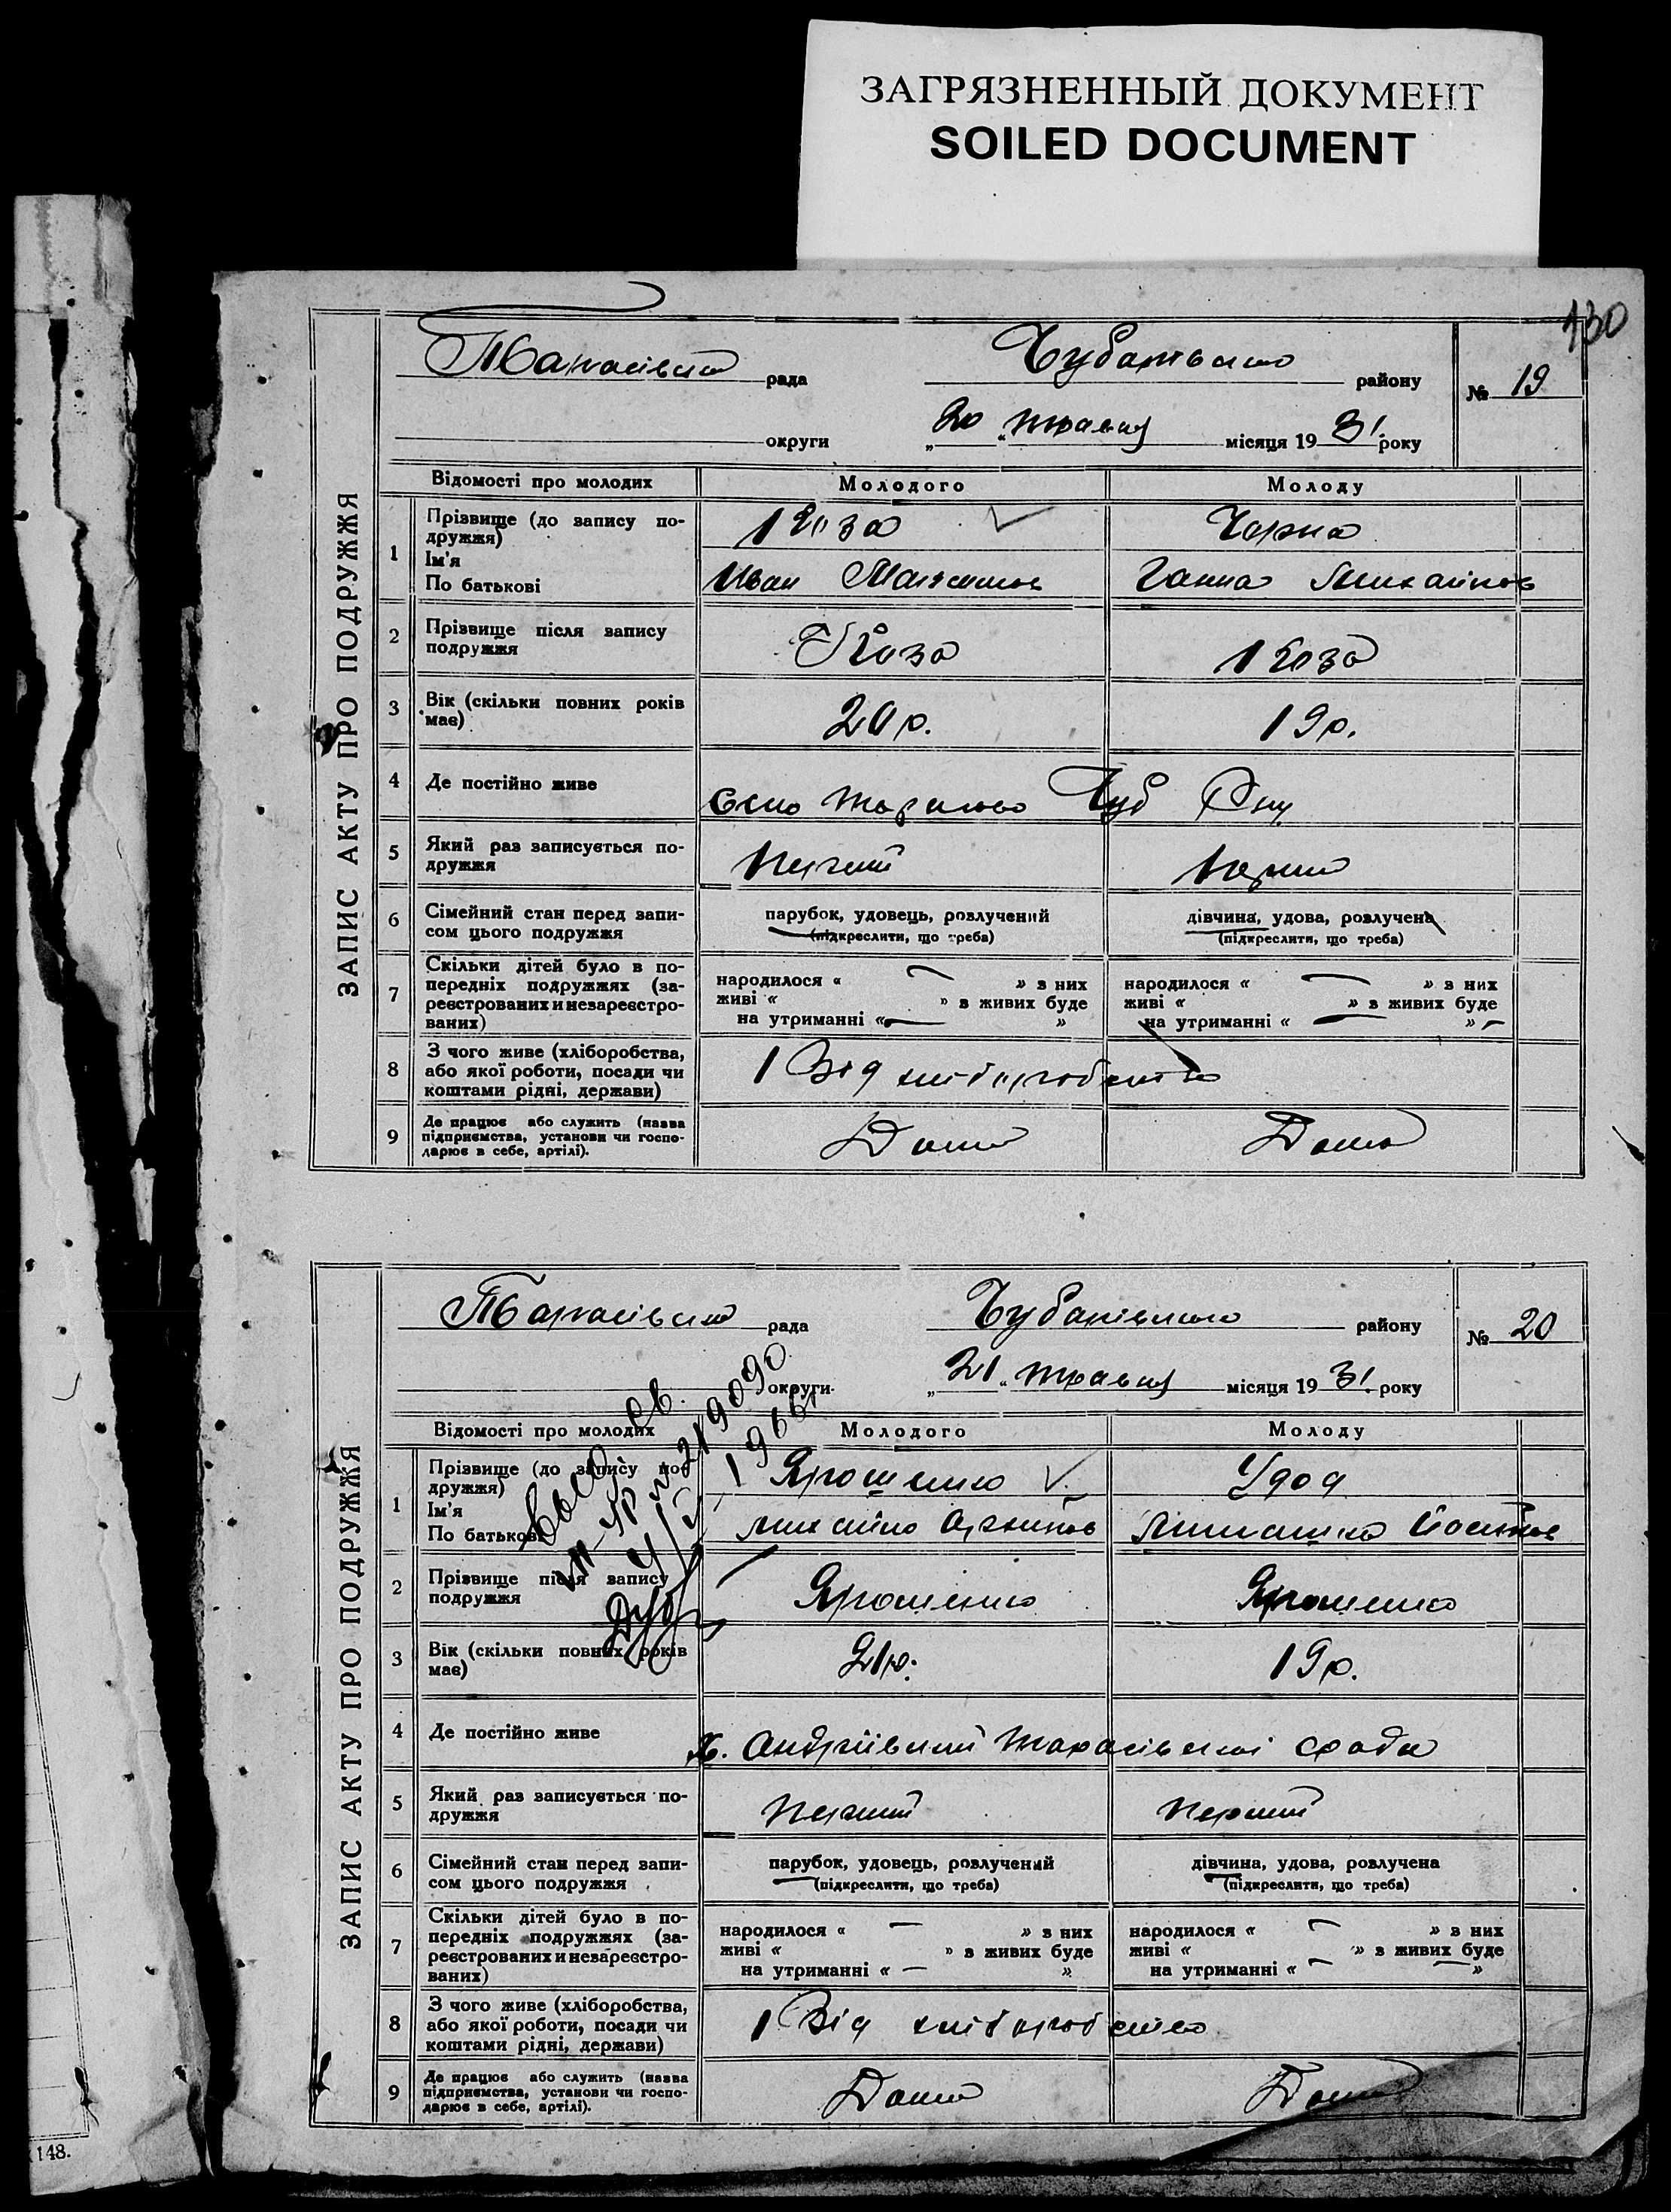 ЗАГРЯЗНЕННЫЙ ДОКУМЕНТ
SOILED DOCUMENT
130
ЗАПИС АКТУ ПРО ПОДРУЖЖЯ
рада
району
№ 19
округи
„20“ травня місяця 1931 року
Відомості про молодих
Молодого
Молоду
1
Прізвище (до запису по-
дружжя)
Ім'я
По батькові
Коза
Чорна
Иван
Ганна
2
Прізвище після запису
подружжя
Коза
Коза
3
Вік (скільки повних років
має)
20 р.
19 р.
4
Де постійно живе
Село
Чуб
5
Який раз записується по-
дружжя
Перший
Перший
6
Сімейний стан перед запи-
сом цього подружжя
парубок, удовець, розлучений
(підкреслити, що треба)
дівчина, удова, розлучена
(підкреслити, що треба)
7
Скільки дітей було в по-
передніх подружжях (за-
реєстрованих и незареєстро-
ваних)
народилося « — » з них
живі « » з живих буде
на утриманні « — »
народилося « — » з них
живі « » з живих буде
на утриманні « — » —
8
З чого живе (хліборобства,
або якої роботи, посади чи
коштами рідні, держави)
Від хліборобства
9
Де працює або служить (назва
підприємства, установи чи госпо-
дарює в себе, артілі).
Дома
Дома
ЗАПИС АКТУ ПРО ПОДРУЖЖЯ
рада
району
№ 20
округи
„21“ травня місяця 1931 року
Відомості про молодих
Молодого
Молоду
1
Прізвище (до запису по-
дружжя)
Ім'я
По батькові
Ярошенко
Удод
Михайло
2
Прізвище після запису
подружжя
Ярошенко
Ярошенко
3
Вік (скільки повних років
має)
21 р.
19 р.
4
Де постійно живе
х. Андріївский Тарасівскоі с ради
5
Який раз записується по-
дружжя
Перший
Перший
6
Сімейний стан перед запи-
сом цього подружжя
парубок, удовець, розлучений
(підкреслити, що треба)
дівчина, удова, розлучена
(підкреслити, що треба)
7
Скільки дітей було в по-
передніх подружжях (за-
реєстрованих и незареєстро-
ваних)
народилося « — » з них
живі « » з живих буде
на утриманні « — »
народилося « — » з них
живі « » з живих буде
на утриманні « — »
8
З чого живе (хліборобства,
або якої роботи, посади чи
коштами рідні, держави)
Від хліборобства
9
Де працює або служить (назва
підприємства, установи чи госпо-
дарює в себе, артілі).
Дома
Дома
148.